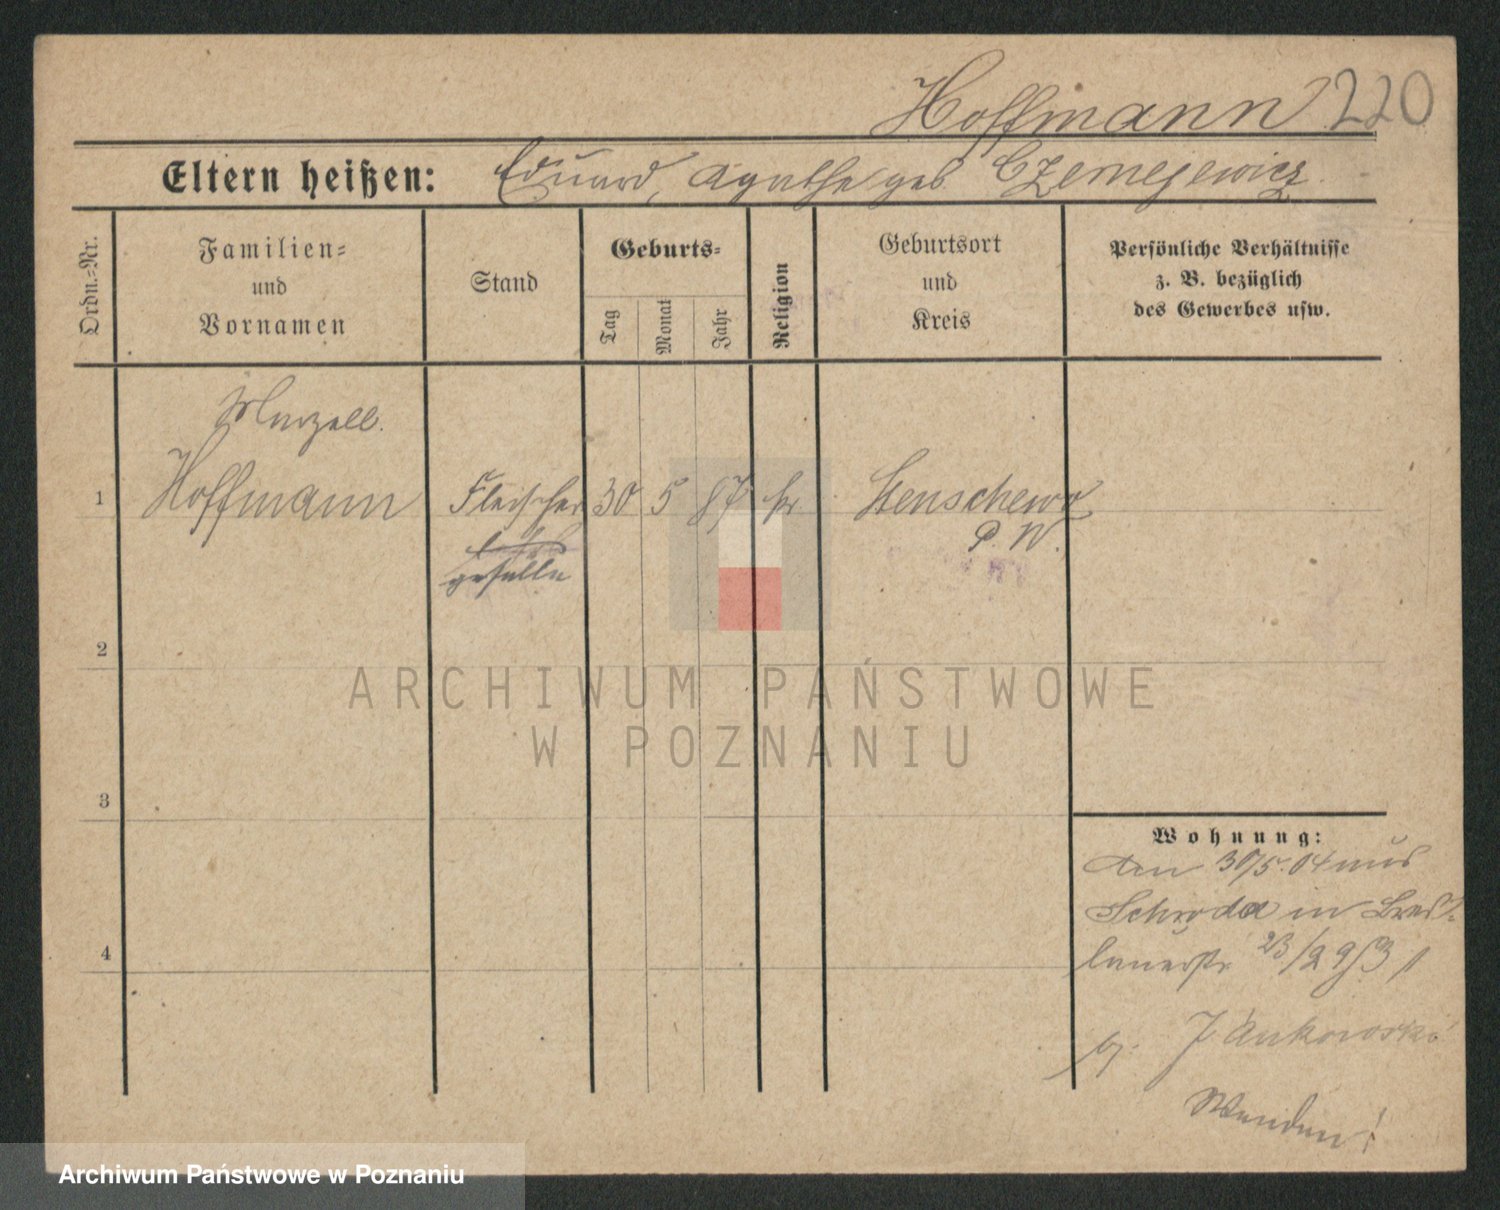 Hoffmann 220
Eltern heißen: Eduard, Agathe geb Czemejewicz.
Ordn.=Nr.
Familien=
und
Vornamen
Stand
Geburts=
Tag
Monat
Jahr
Religion
Geburtsort
und
Kreis
Persönliche Verhältnisse
z. B. bezüglich
des Gewerbes usw.
Marzell.
1 Hoffmann Fleischer 30 5 87 k. Stenschewo
P. W.
geselle
2
3
4
Wohnung:
Am 30/5.04 aus
Schroda in Bres-
lauerstr. 23/29
b. Jankowski
Wenden!
ARCHIWUM PAŃSTWOWE
W POZNANIU
Archiwum Państwowe w Poznaniu